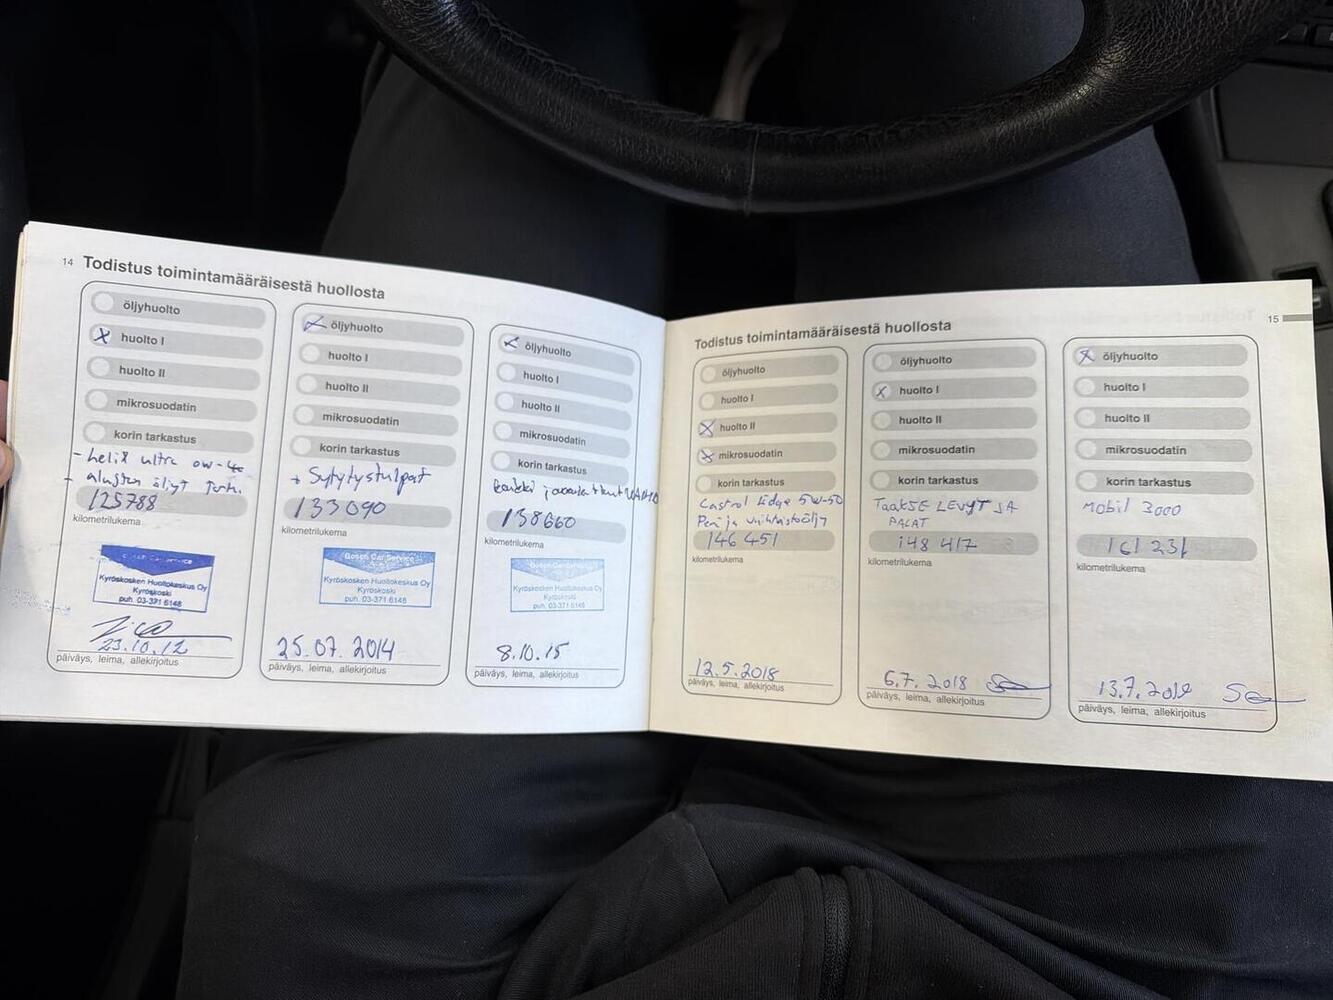 14 Todistus toimintamääräisestä huollosta
öljyhuolto
X huolto I
huolto II
mikrosuodatin
korin tarkastus
- helix ultra 0w-40
125788
kilometrilukema
Bosch Car Service
Kyröskosken Huoltokeskus Oy
Kyröskoski
puh. 03-371 6146
23.10.12
päiväys, leima, allekirjoitus
X öljyhuolto
huolto I
huolto II
mikrosuodatin
korin tarkastus
+ Sytytystulpat
133090
kilometrilukema
Bosch Car Service
Kyröskosken Huoltokeskus Oy
Kyröskoski
puh. 03-371 6146
25.07.2014
päiväys, leima, allekirjoitus
X öljyhuolto
huolto I
huolto II
mikrosuodatin
korin tarkastus
138660
kilometrilukema
Bosch Car Service
Kyröskosken Huoltokeskus Oy
Kyröskoski
puh. 03-371 6146
8.10.15
päiväys, leima, allekirjoitus
Todistus toimintamääräisestä huollosta 15
öljyhuolto
huolto I
X huolto II
X mikrosuodatin
korin tarkastus
Castrol Edge 5W-50
Perä ja vaihteistoöljy
146 451
kilometrilukema
12.5.2018
päiväys, leima, allekirjoitus
öljyhuolto
X huolto I
huolto II
mikrosuodatin
korin tarkastus
TaakSE LEVYT JA
PALAT
148 417
kilometrilukema
6.7.2018
päiväys, leima, allekirjoitus
X öljyhuolto
huolto I
huolto II
mikrosuodatin
korin tarkastus
Mobil 3000
161 231
kilometrilukema
13.7.2019
päiväys, leima, allekirjoitus